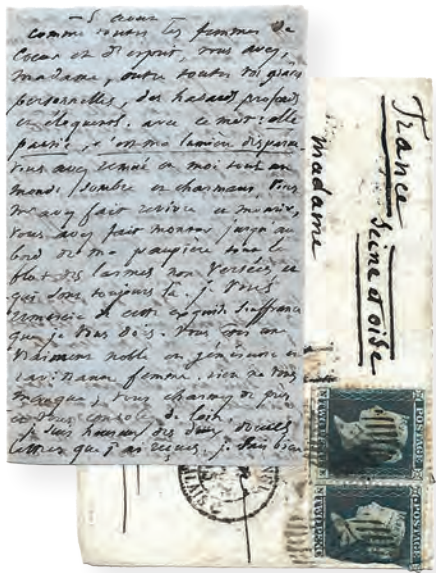 — 5 avril —
comme toutes les femmes de
cœur et d'esprit, vous avez,
madame, outre toutes vos grâces
personnelles, des hasards profonds
et éloquents. avec ce mot: elle
c'est ma lumière disparue
vous avez remué en moi tout un
monde sombre et charmant. Vous
m'avez fait revivre et mourir,
vous avez fait monter jusqu'au
bord de ma paupière tout le
flot des larmes non versées et
qui sont toujours là. je vous
remercie de cette exquise souffrance
que je vous dois. Vous êtes une
vraiment noble et généreuse et
ravissante femme. rien ne vous
manque. vous charmez de près
et vous consolez de loin.
je suis heureux des deux
lettres que j'ai reçues. je suis bien
France
Seine et oise
madame
POSTAGE
TWO PENCE
POSTAGE
TWO PENCE
CALAIS